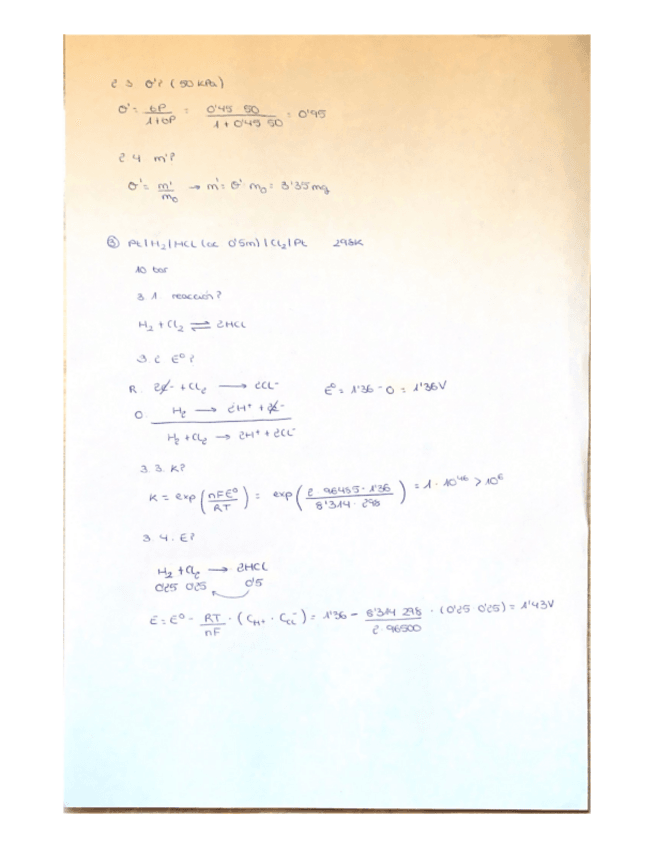 2 3 θ'? (50 kPa)
θ' = bP / 1+bP = 0'45 50 / 1 + 0'45 50 = 0'95
2 4 m'?
θ' = m' / m₀ → m' = θ' m₀ = 3'35 mg
③ Pt | H₂ | HCl (ac 0'5m) | Cl₂ | Pt 298K
10 bar
3. 1 reacción?
H₂ + Cl₂ ⇌ 2HCl
3. 2 E⁰?
R. 2e⁻ + Cl₂ → 2Cl⁻ E⁰ = 1'36 - 0 = 1'36V
O. H₂ → 2H⁺ + 2e⁻
H₂ + Cl₂ → 2H⁺ + 2Cl⁻
3. 3. K?
K = exp (nFE⁰ / RT) = exp (2 96485 · 1'36 / 8'314 · 298) = 1 · 10⁴⁶ > 10⁶
3. 4. E?
H₂ + Cl₂ → 2HCl
0'25 0'25 0'5
E = E⁰ - RT / nF · (C_H⁺ · C_Cl⁻) = 1'36 - 8'314 298 / 2 96500 · (0'25 0'25) = 1'43V